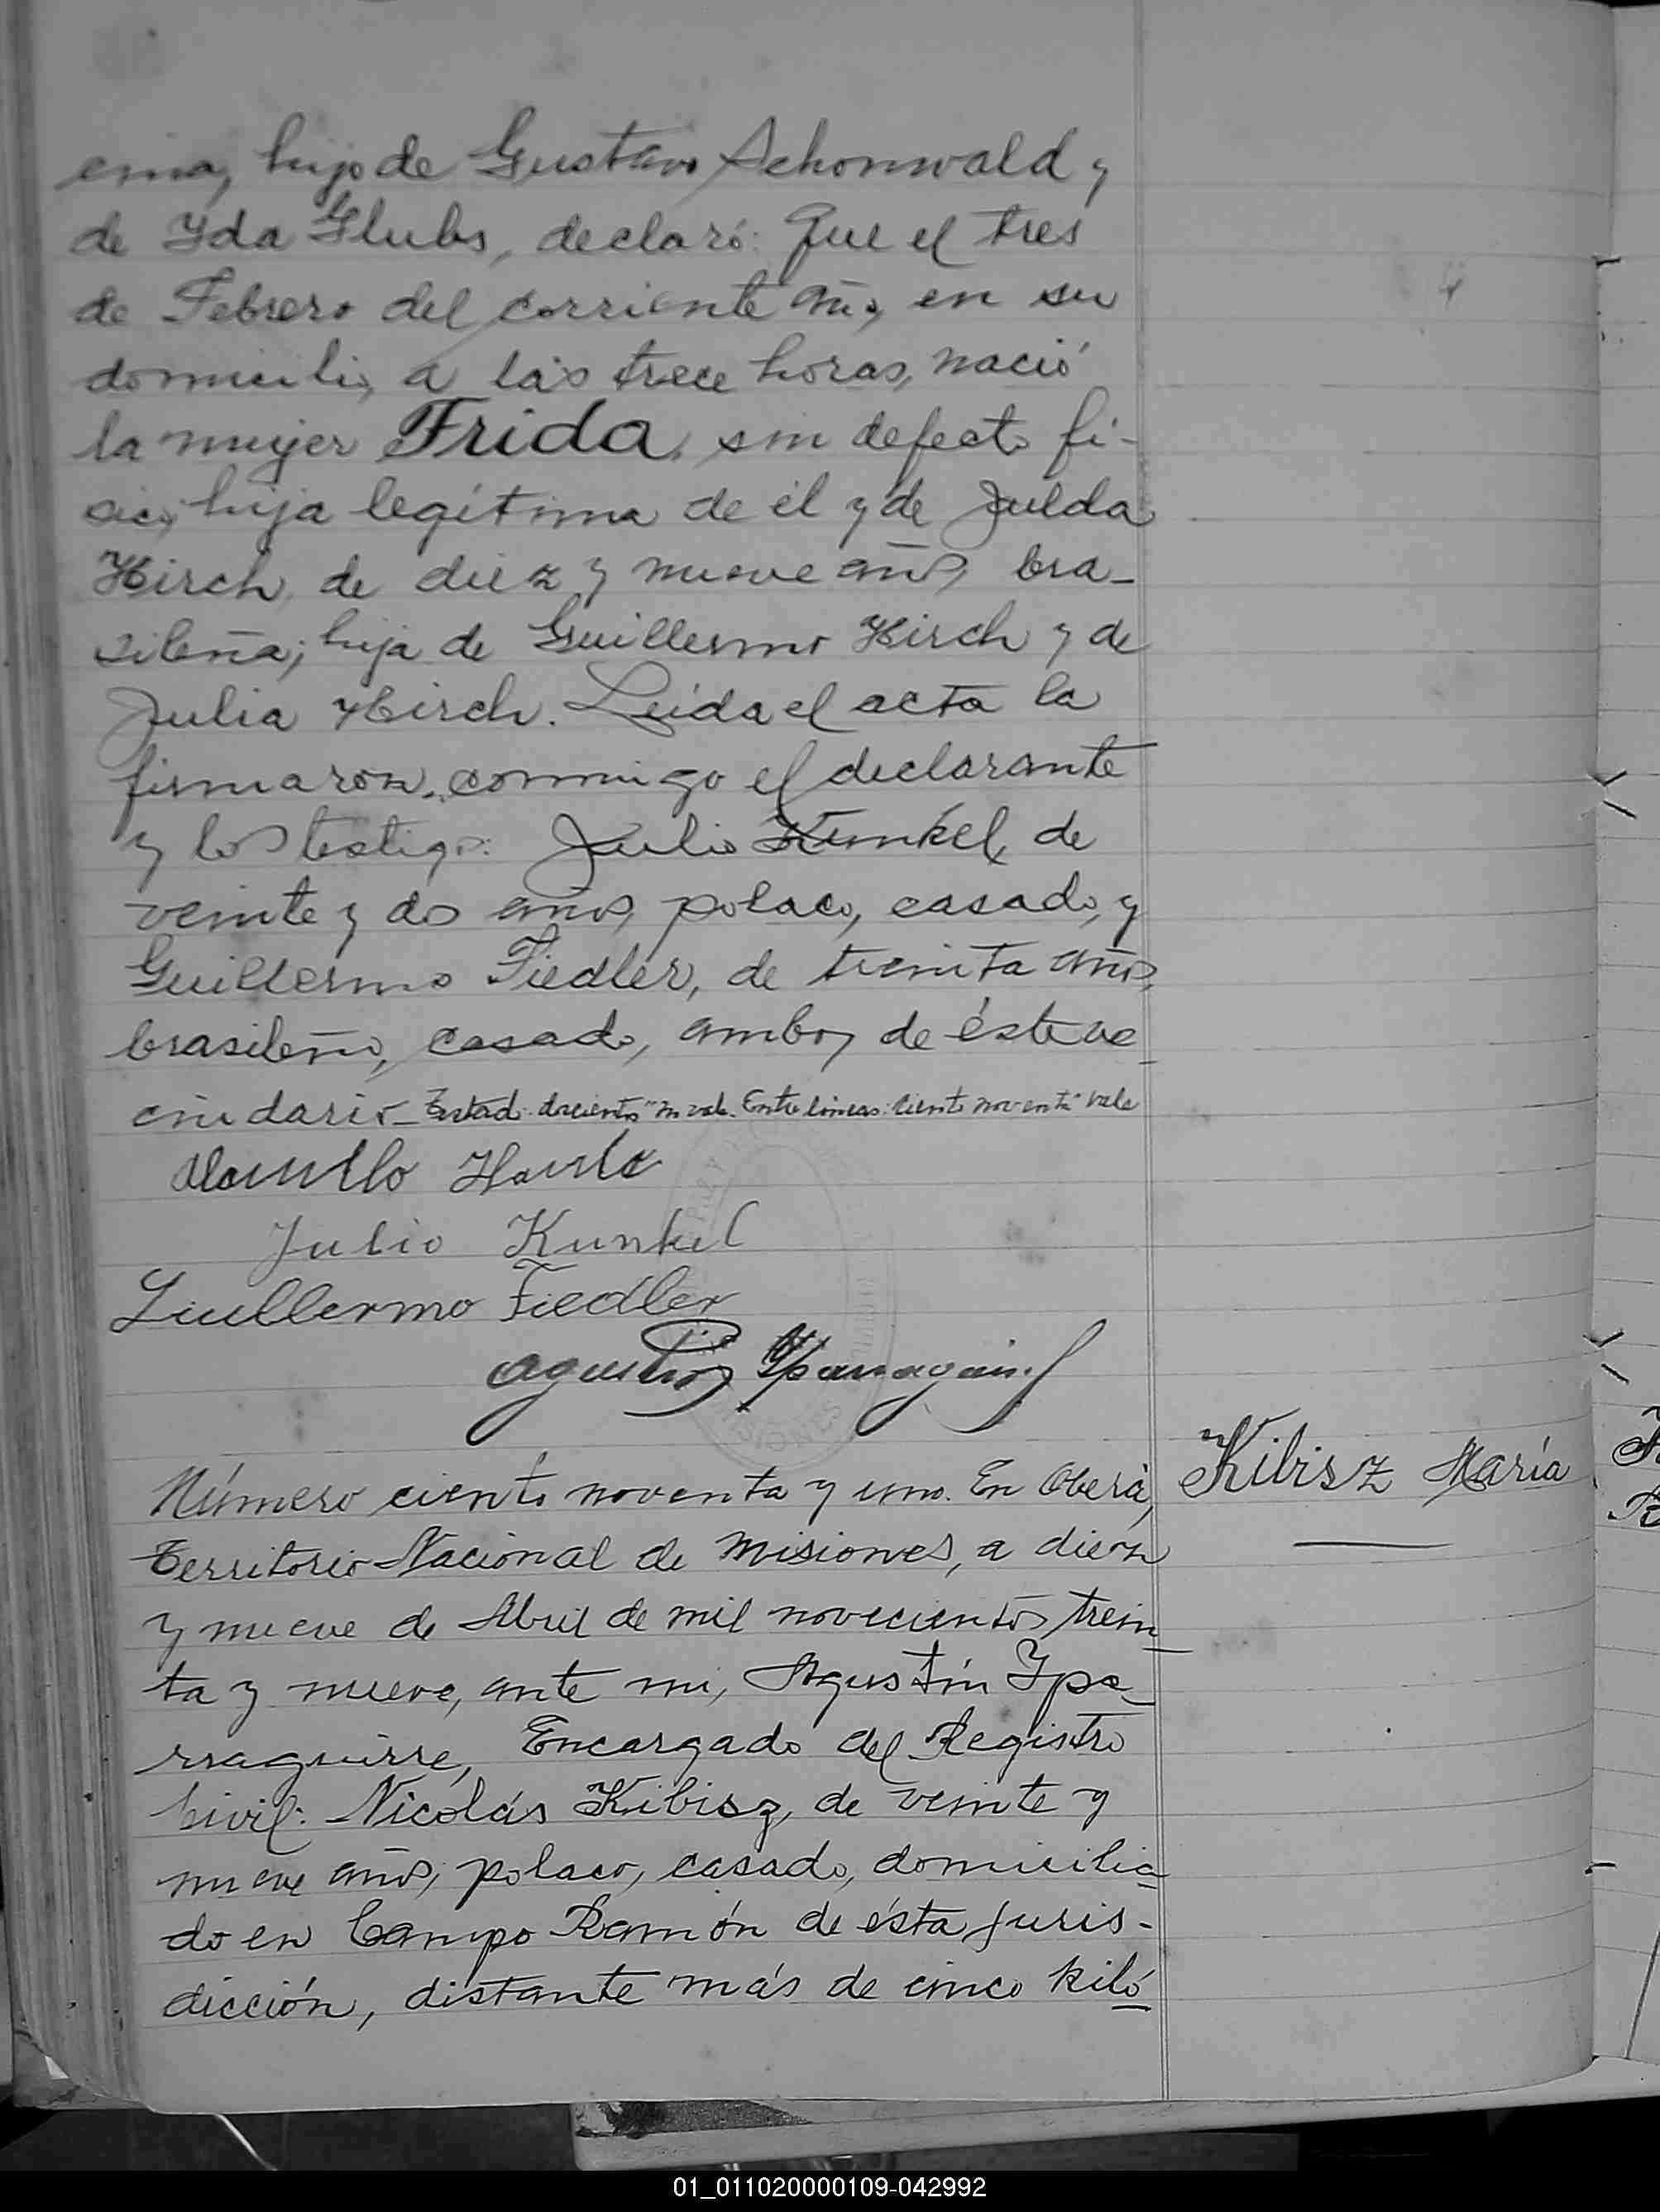 cina, hijo de Gustavo Schonwald y
de Yda Glubs, declaró: Que el tres
de Febrero del corriente año, en su
domicilio, a las trece horas, nació
la mujer Frida, sin defecto fí-
sico, hija legítima de él y de Julda
Hirch, de diez y nueve años, bra-
sileña; hija de Guillermo Hirch y de
Julia Hirch. Leída el acta la
firmaron conmigo el declarante
y los testigos: Julio Kunkel, de
veinte y dos años, polaco, casado, y
Guillermo Fiedler, de treinta años,
brasileño, casado, ambos de éste ve-
cindario_ Testado: doscientos" no vale. Entre líneas: ciento noventa" vale
Julio Kunkel
Guillermo Fiedler
Agustín Yparraguirre
Número ciento noventa y uno. En Oberá,
Territorio Nacional de Misiones, a diez
y nueve de Abril de mil novecientos trein_
ta y nueve, ante mi, Agustín Ypa_
rraguirre, Encargado del Registro
Civil: Nicolás Kibisz, de veinte y
nueve años, polaco, casado, domicilia_
do en Campo Ramón de ésta juris-
dicción, distante más de cinco kiló_
Kibisz María
MISIONES
01_011020000109-042992